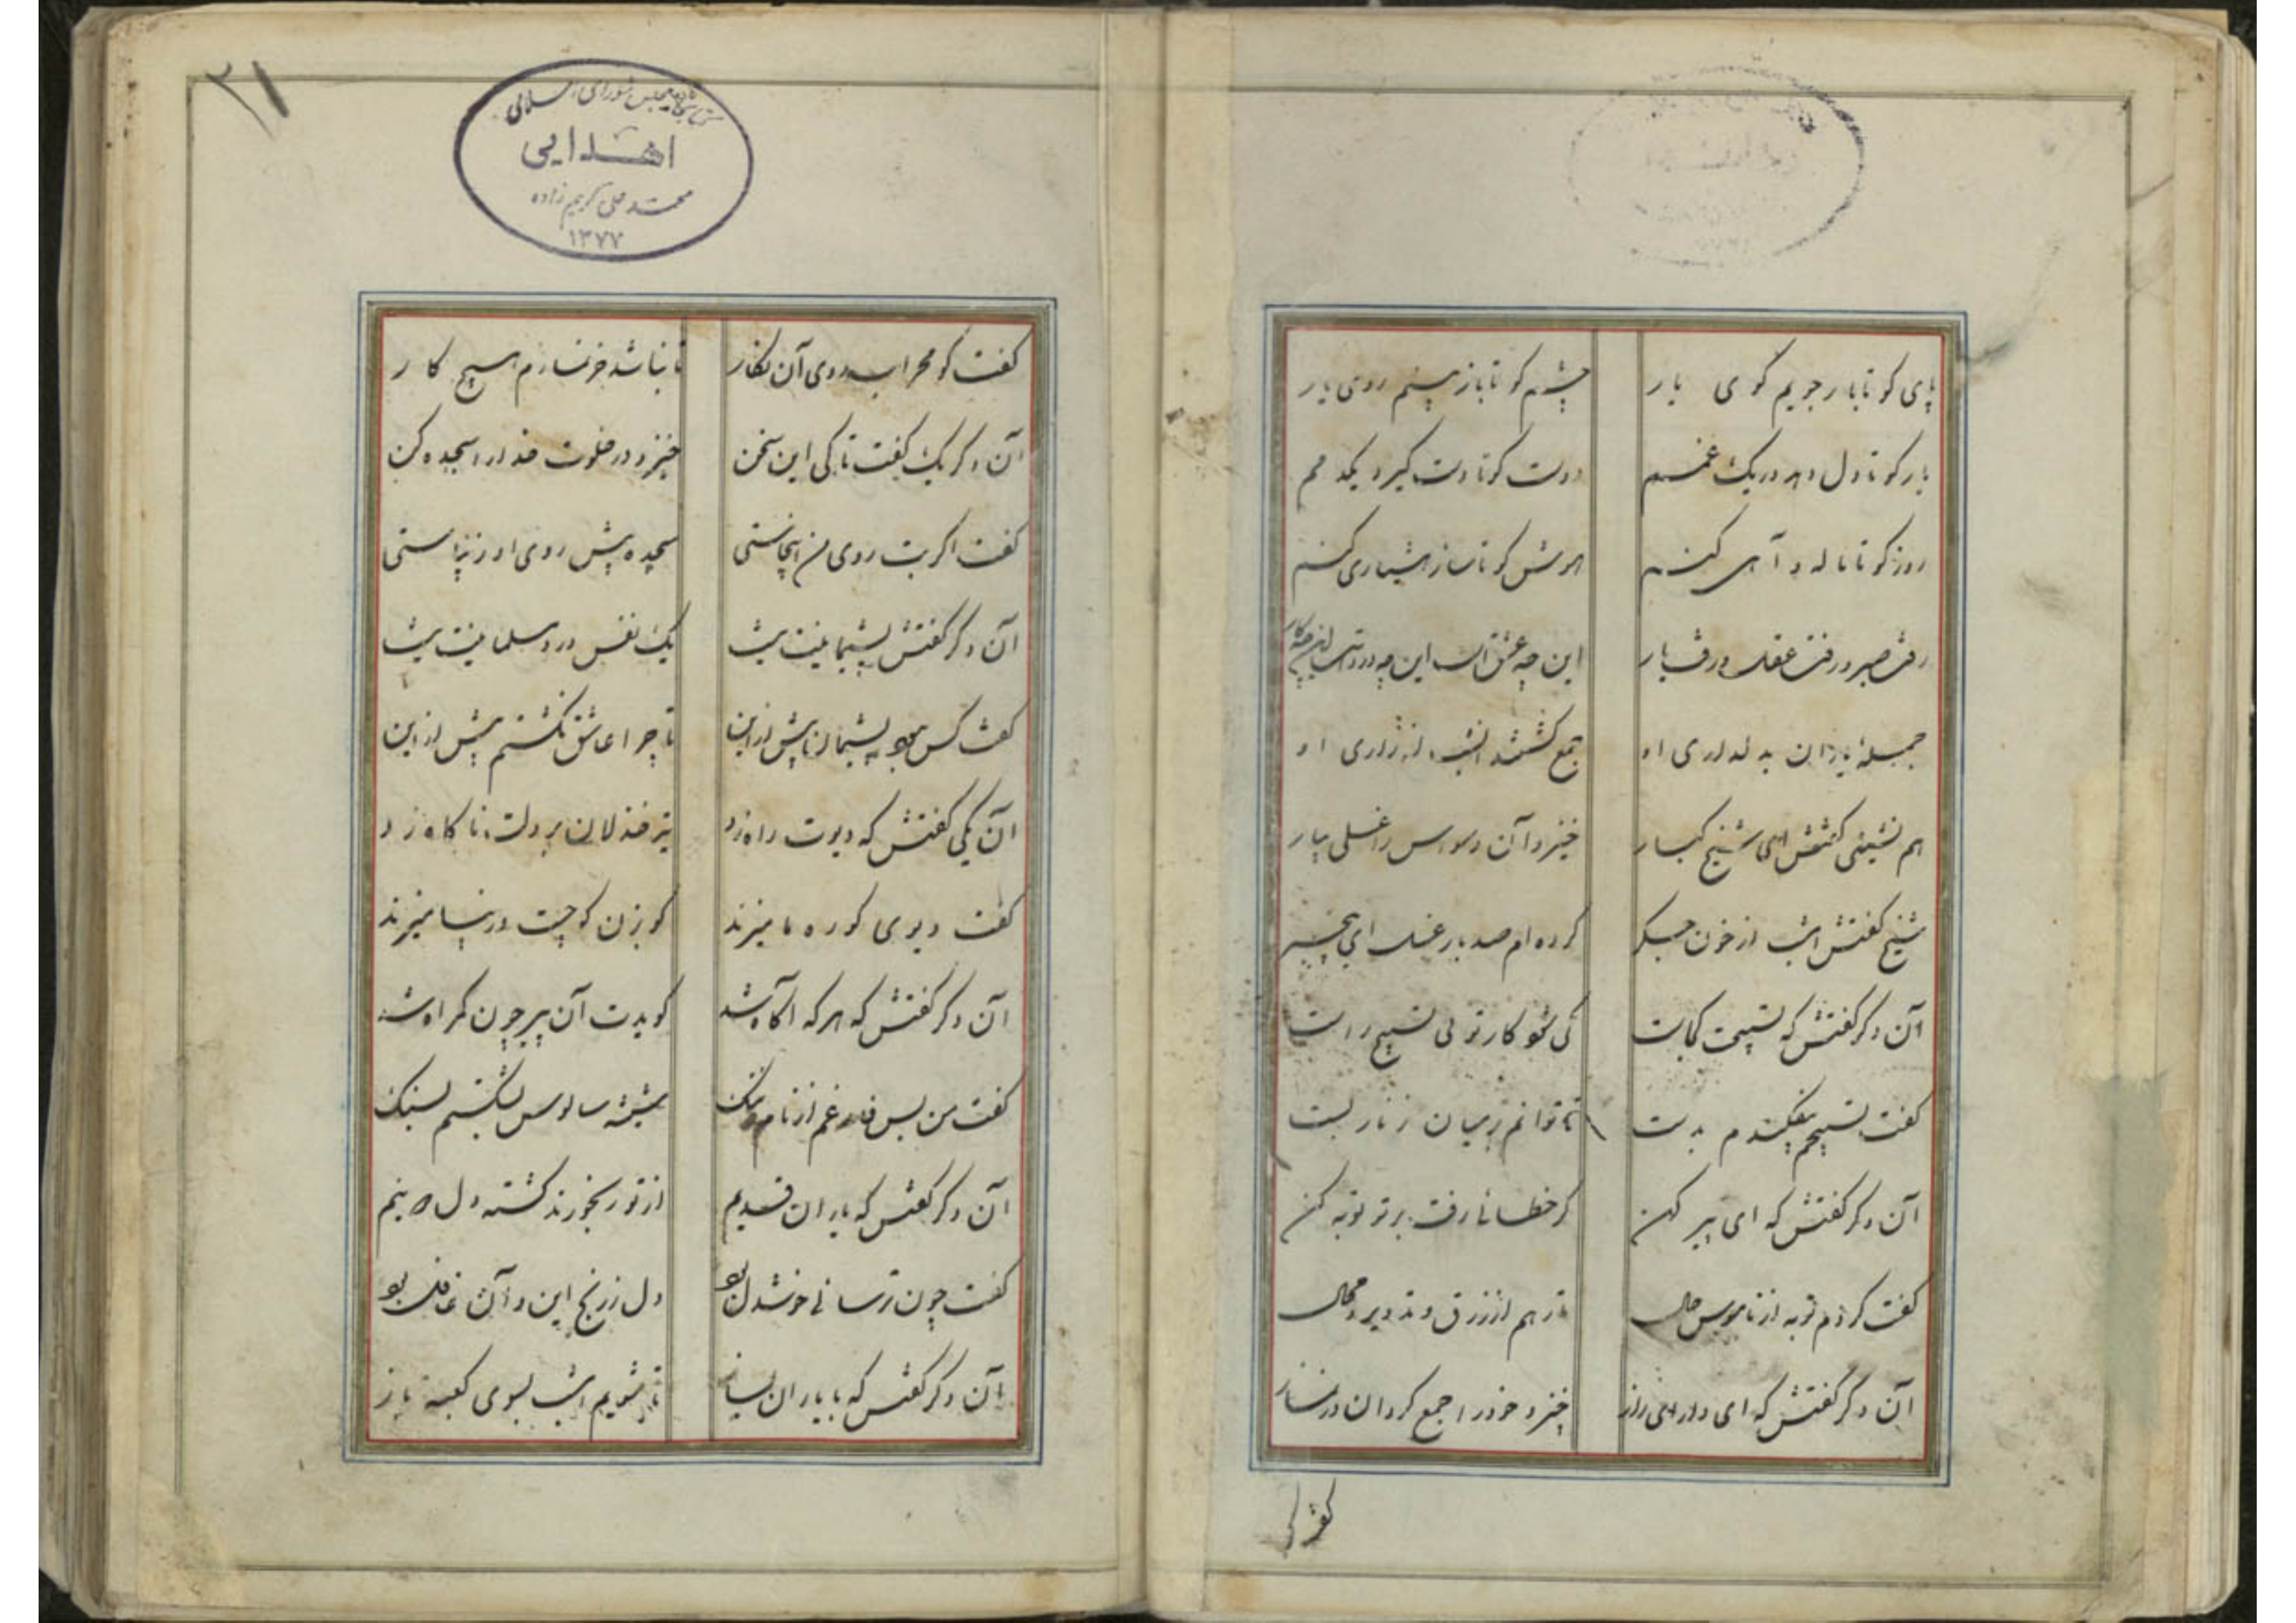 پای کو تا باز جویم کوی یار چشم کو تا باز بینم روی یار
یار کو تا دل دهد در یک غمم دوست کو تا دست گیرد یکدمم
زور کو تا ناله و آهی کنم هوش کو تا ساز هشیاری کنم
رفت صبر و رفت عقل و رفت یار این چه عشق است این چه درد است این چه کار
جملهٔ یاران بدلداری او جمع گشتند آنشب از زاری او
هم نشینی گفتش ای شیخ کبار خیز و آن وسواس را غسلی بیار
شیخ گفتش امشب از خون جگر کرده‌ام صد بار غسل ای بیخبر
آن دگر گفتش که تسبیحت کجاست کی شود کار تو بی تسبیح راست
گفت تسبیحم بیفکندم ز دست تا توانم بر میان زنار بست
آن دگر گفتش که ای پیر کهن گر خطائی رفت بر تو توبه کن
گفت کردم توبه از ناموس و حال تا رهم از زرق و تزویر و محال
آن دگر گفتش که ای دارای راز خیز و خود را جمع گردان در نماز
گفت کو
۲۱
کتابخانه مجلس شورای اسلامی
اهدایی
محمد علی کریم زاده
۱۳۷۷
گفت کو محراب روی آن نگار تا نباشد جز نمازم هیچ کار
آن دگر یک گفت تا کی این سخن خیز و در خلوت خدا را سجده کن
گفت اگر بت روی من اینجاستی سجده پیش روی او زیباستی
آن دگر گفتش پشیمانیت نیست یک نفس درد مسلمانیت نیست
گفت کس نبود پشیمان بیش از این تا چرا عاشق نگشتم پیش از این
آن یکی گفتش که دیوت راه زد تیر خذلان بر دلت ناگاه زد
گفت دیوی کو ره ما میزند گو بزن گو چست و زیبا میزند
آن دگر گفتش که هر که آگاه شد گوید این پیر چون گمراه شد
گفت من بس فارغم از نام و ننگ شیشهٔ سالوس بشکستم بسنگ
آن دگر گفتش که یاران قدیم از تو رنجورند گشته دل دو نیم
گفت چون ترسائی خوشدل بود دل ز رنج این و آن غافل بود
آن دگر گفتش که با یاران بساز تا شویم امشب بسوی کعبه باز